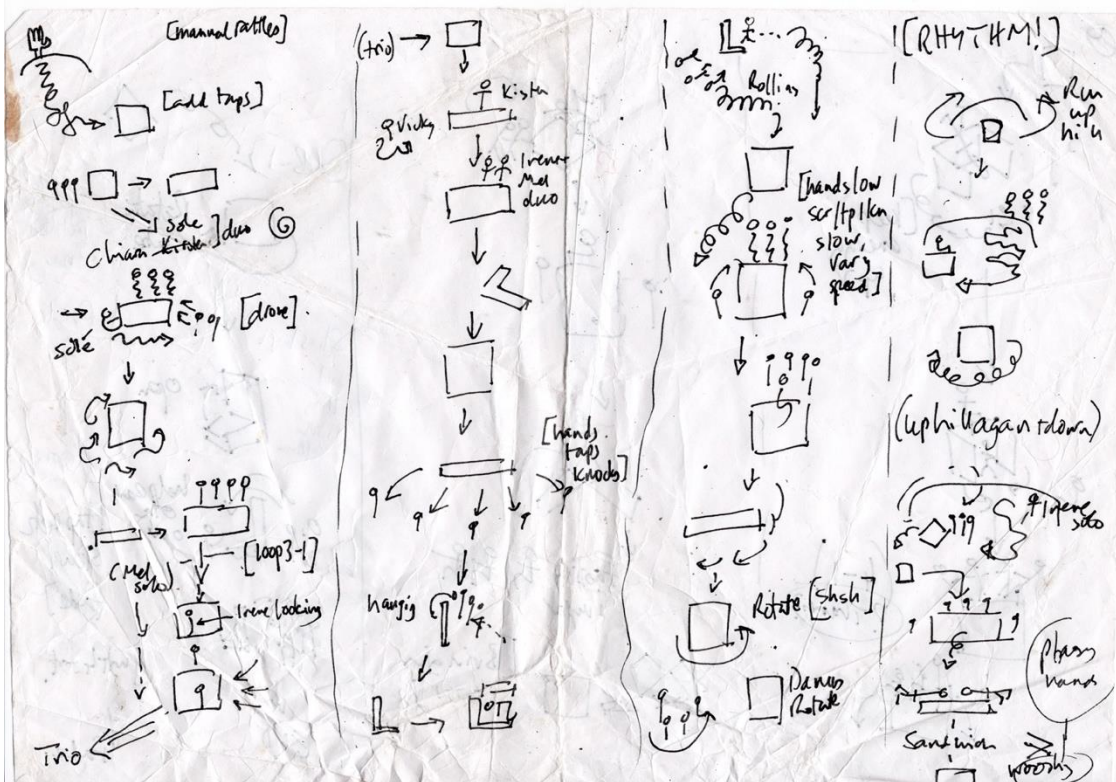 [manual rattles]
[add taps]
sole
Chiam Kirsten] duo
[drone]
sole
[loop3-1]
(Mel
solo)
Irene looking
Trio
(trio)
Kirsten
Vicky
Irene
Mel
duo
[hands
taps
knocks]
hangig
Rolling
[hands low
slow,
vary
speed]
Rotate [shsh]
Rotate
[RHYTHM!]
Run
up
high
(uphill again + down)
Irene
solo
hands
Sandwich